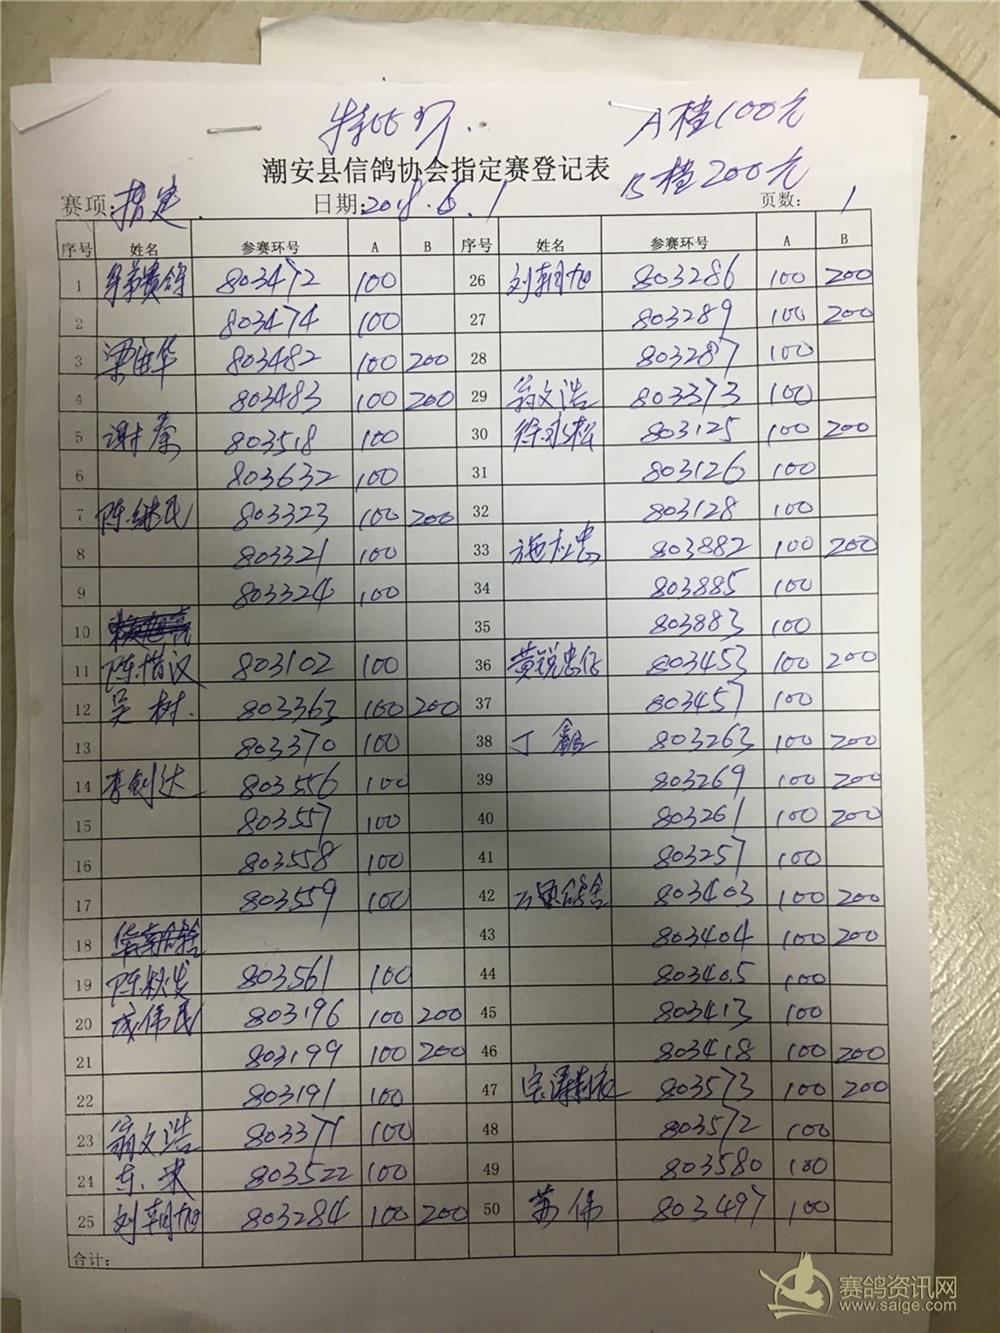 特比环.
A档100元
潮安县信鸽协会指定赛登记表
B档200元
赛项:指定. 日期:2018.6.1 页数: 1
序号 姓名 参赛环号 A B 序号 姓名 参赛环号 A B
1 803472 100 26 刘朝旭 803286 100 200
2 803474 100 27 803289 100 200
3 803482 100 200 28 803287 100
4 803483 100 200 29 翁文浩 803373 100
5 谢秦 803518 100 30 徐永松 803125 100 200
6 803632 100 31 803126 100
7 陈继民 803323 100 200 32 803128 100
8 803321 100 33 803882 100 200
9 803324 100 34 803885 100
10 35 803883 100
11 陈惜汉 803102 100 36 黄锐忠仔 803453 100 200
12 吴树. 803363 100 200 37 803457 100
13 803370 100 38 丁鑫 803263 100 200
14 李创达 803556 100 39 803269 100 200
15 803557 100 40 803261 100 200
16 803558 100 41 803257 100
17 803559 100 42 803403 100 200
18 43 803404 100 200
19 陈秋发 803561 100 44 803405 100
20 成伟民 803196 100 200 45 803413 100
21 803199 100 200 46 803418 100 200
22 803191 100 47 803573 100 200
23 翁文浩 803371 100 48 803572 100
24 803522 100 49 803580 100
25 刘朝旭 803284 100 200 50 苏伟 803497 100
合计:
赛鸽资讯网
www.saige.com